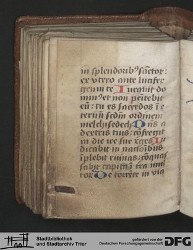 in splendorib' sctor:
ex utero ante lucifer
genui te Iurauit do
minus et non penitebit
eum: tu es sacerdos i e
ternu scdm ordinem
melchisedech Dns a
dextris tuis: cofregit
in die ire sue reges Iu
dicabit in nationib'
iplebit ruinas: coqua
sabit capita i terra mul
tor De torrete in via
Stadtbibliothek
und Stadtarchiv Trier
gefördert von der
Deutschen Forschungsgemeinschaft
DFG